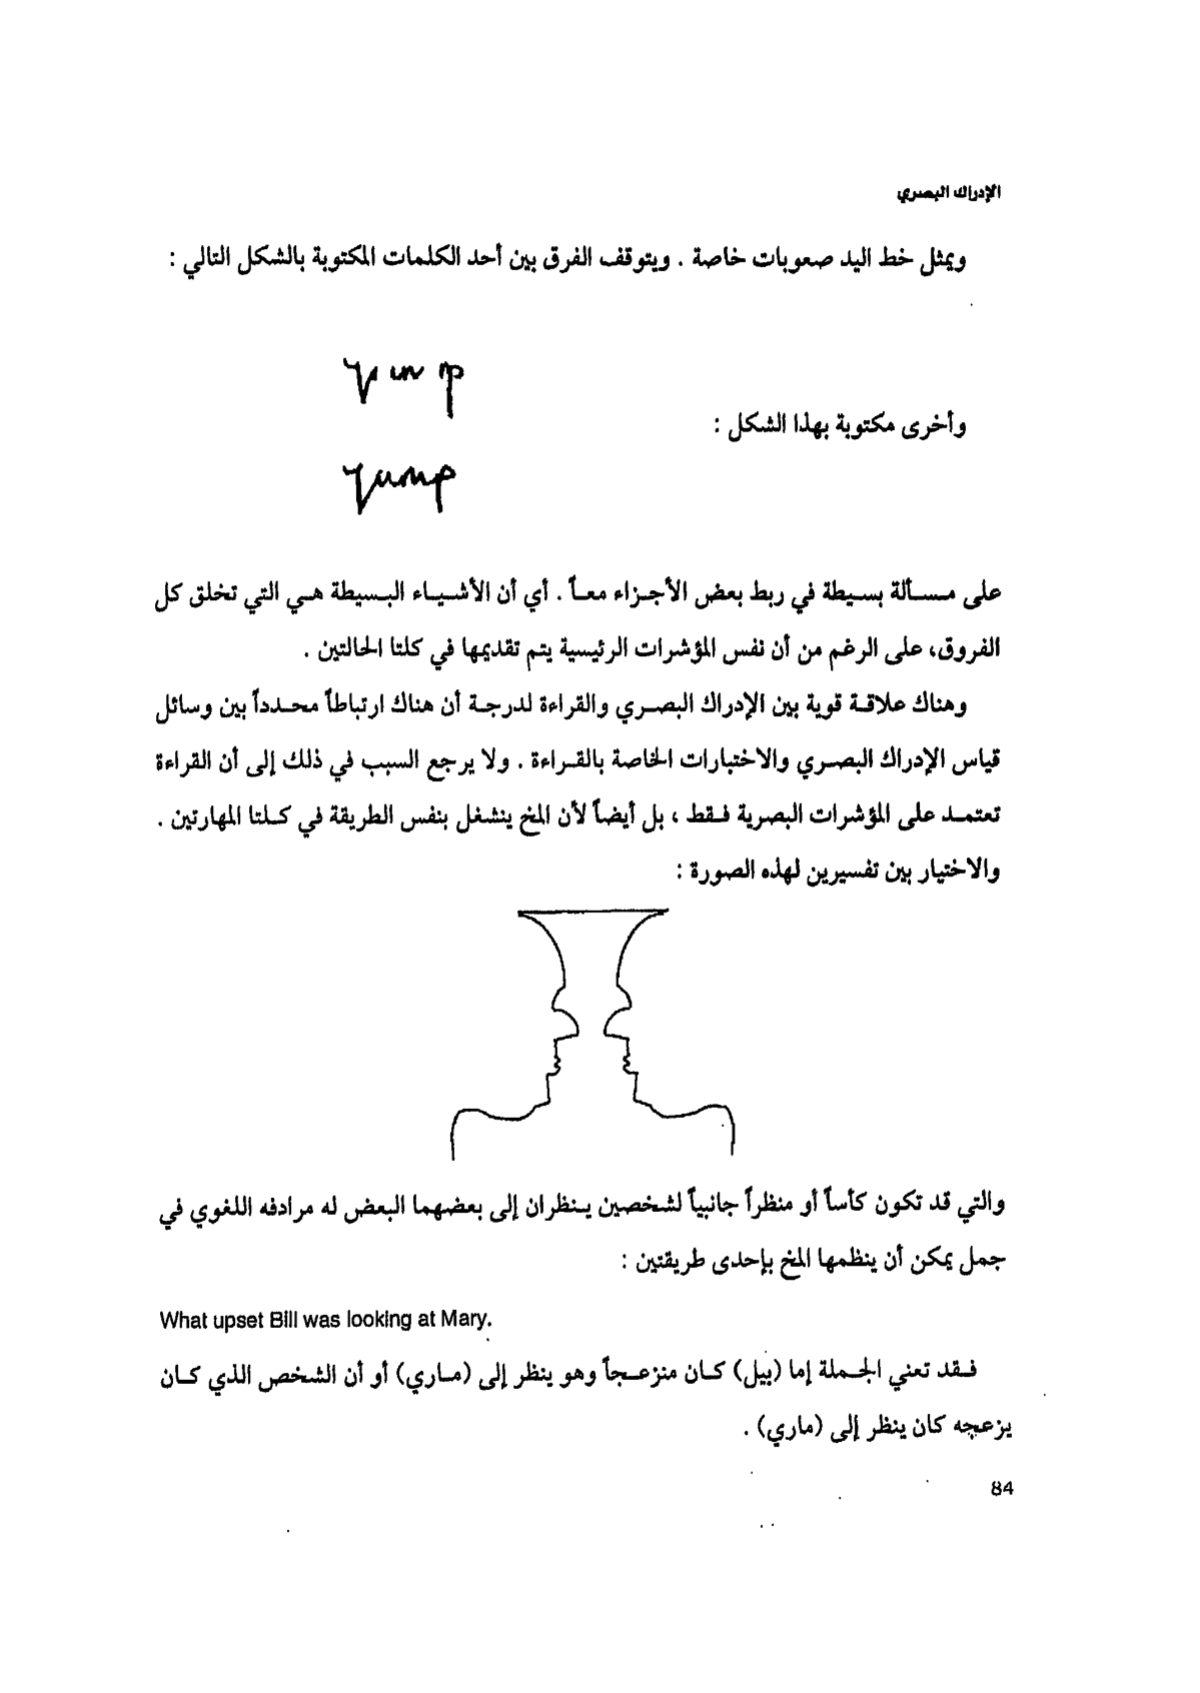 الإدراك البصري
ويمثل خط اليد صعوبات خاصة . ويتوقف الفرق بين أحد الكلمات المكتوبة بالشكل التالي :
وأخرى مكتوبة بهذا الشكل :
jump
على مسألة بسيطة في ربط بعض الأجزاء معاً . أي أن الأشياء البسيطة هي التي تخلق كل
الفروق، على الرغم من أن نفس المؤشرات الرئيسية يتم تقديمها في كلتا الحالتين .
وهناك علاقة قوية بين الإدراك البصري والقراءة لدرجة أن هناك ارتباطاً محدداً بين وسائل
قياس الإدراك البصري والاختبارات الخاصة بالقراءة . ولا يرجع السبب في ذلك إلى أن القراءة
تعتمد على المؤشرات البصرية فقط ، بل أيضاً لأن المخ ينشغل بنفس الطريقة في كلتا المهارتين .
والاختيار بين تفسيرين لهذه الصورة :
والتي قد تكون كأساً أو منظراً جانبياً لشخصين ينظران إلى بعضهما البعض له مرادفه اللغوي في
جمل يمكن أن ينظمها المخ بإحدى طريقتين :
What upset Bill was looking at Mary.
فقد تعني الجملة إما (بيل) كان منزعجاً وهو ينظر إلى (ماري) أو أن الشخص الذي كان
يزعجه كان ينظر إلى (ماري) .
84